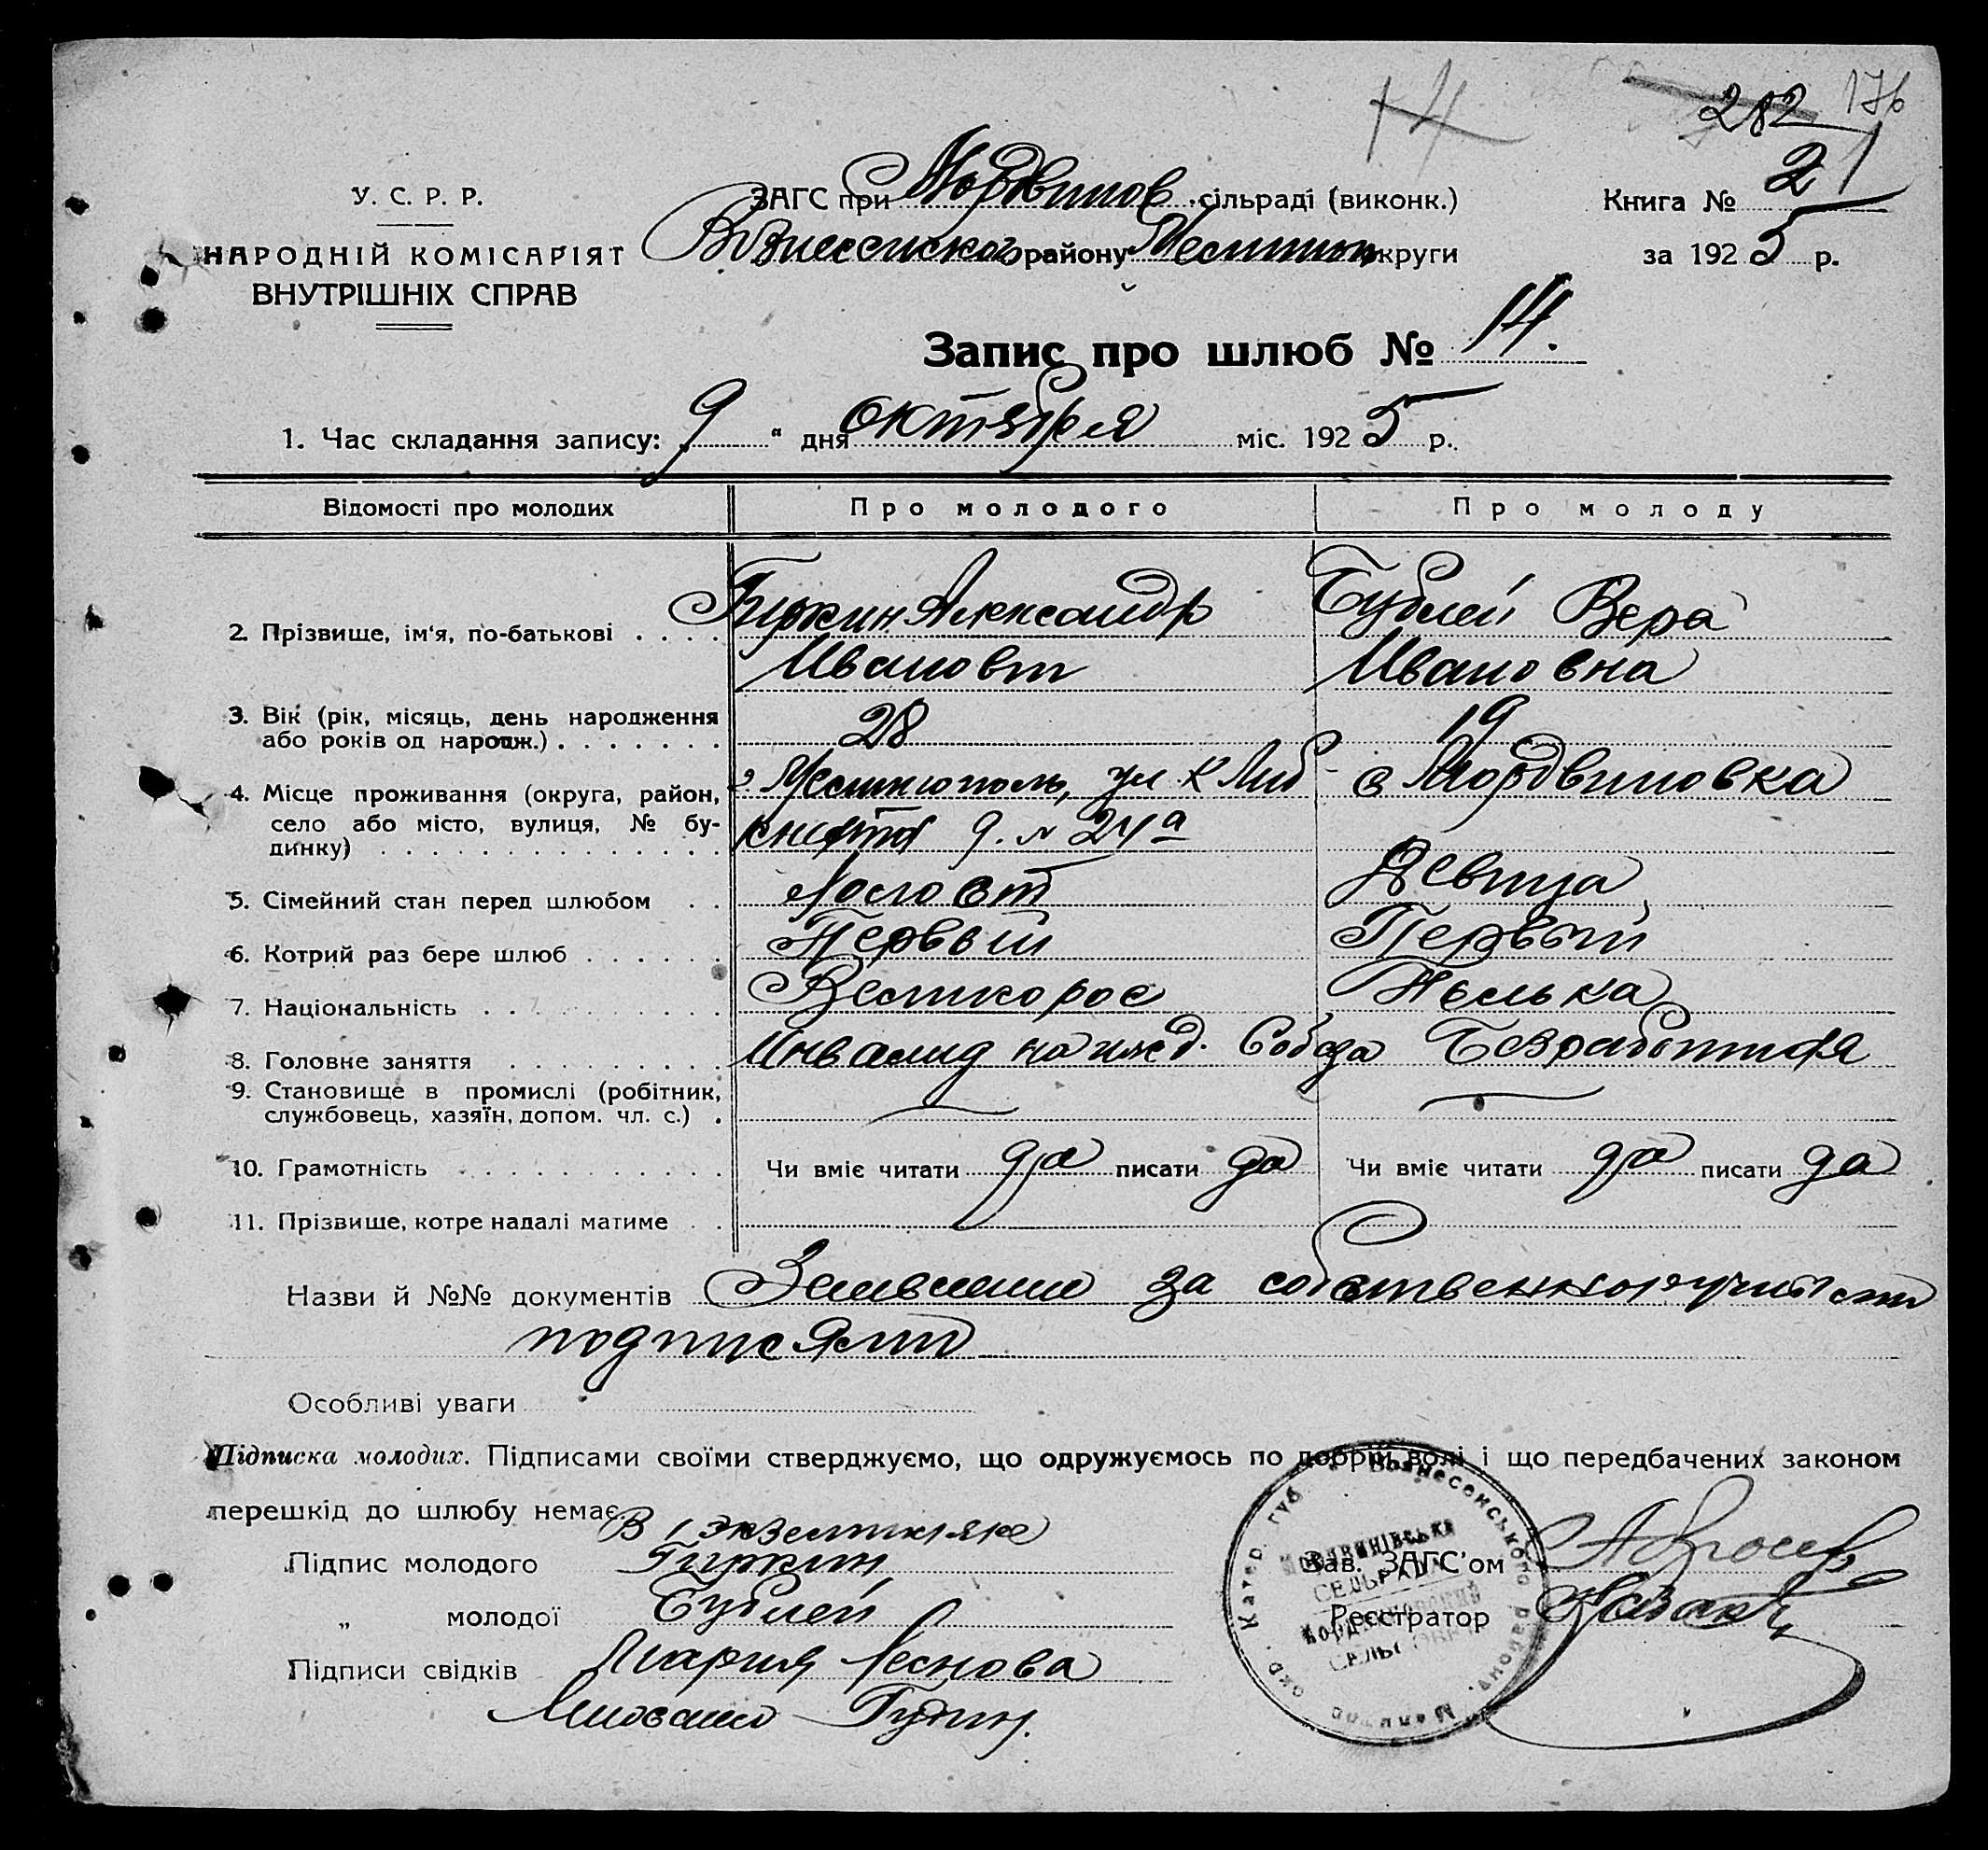 14
282 176
У. С. Р. Р.
ЗАГС при Мордвинов. сільраді (виконк.)
Книга № 21
НАРОДНІЙ КОМІСАРІЯТ
Вознесенског району Мелитоп округи
за 1925 р.
ВНУТРІШНІХ СПРАВ
Запис про шлюб № 14.
1. Час складання запису: 9 " дня октября міс. 1925 р.
Відомості про молодих
Про молодого
Про молоду
2. Прізвище, ім'я, по-батькові
Александр
Иванович
Бублей Вера
Ивановна
3. Вік (рік, місяць, день народження
або років од народж.)
28
19
4. Місце проживання (округа, район,
село або місто, вулиця, № бу-
динку)
г Мелитополь, ул К Либ-
кнехта д. № 24а
с Мордвиновка
5. Сімейний стан перед шлюбом
Холост
Девица
6. Котрий раз бере шлюб
Первый
Первый
7. Національність
Великорос
Полька
8. Головне заняття
Инвалид на ижд. Собеза
Безработная
9. Становище в промислі (робітник,
службовець, хазяїн, допом. чл. с.)
10. Грамотність
Чи вміє читати да писати да
Чи вміє читати да писати да
11. Прізвище, котре надалі матиме
Назви й №№ документів за собственноручными
подписями
Особливі уваги
Підписка молодих. Підписами своїми стверджуємо, що одружуємось по добрій волі і що передбачених законом
перешкід до шлюбу немає.
В 1 экземпляре
Підпис молодого
" молодої Бублей
Підписи свідків Мария Леснова
Зав. ЗАГС'ом
Реєстратор Козак
Катер. губ. Вознесенського району. Мелитоп. окр.
Мордвинівська
сельрада
Мордвиновский
сельсовет